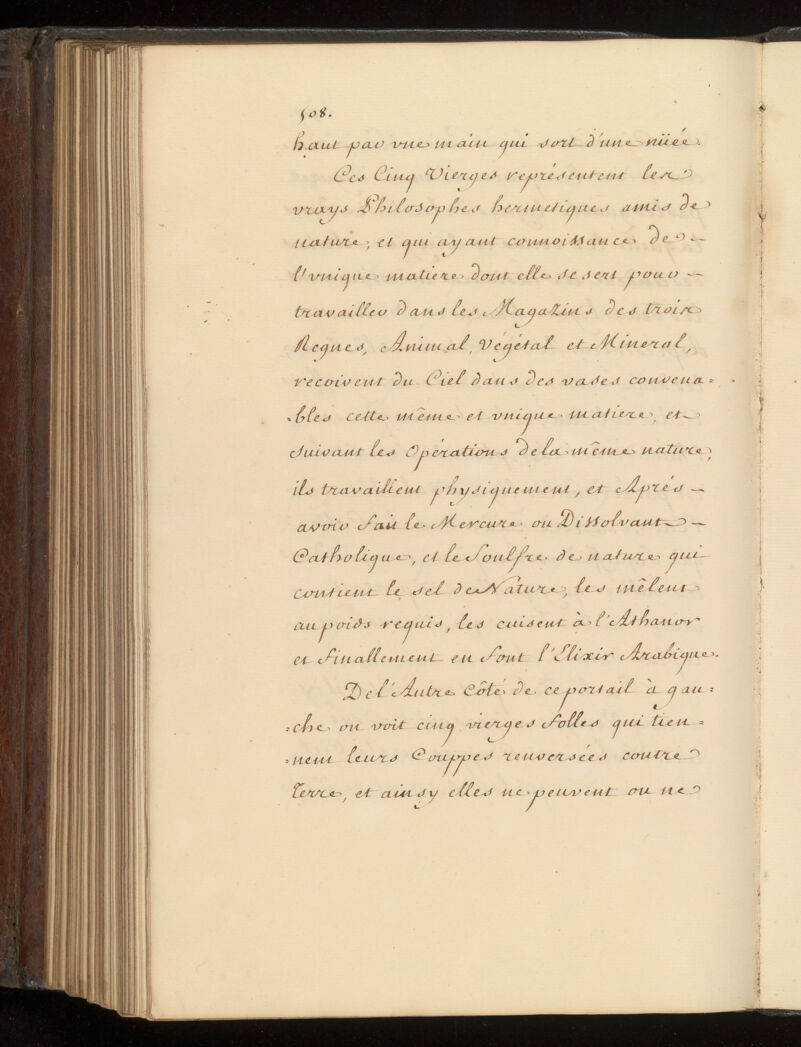 508.
haut par vne main qui sort d'une nüée.
Ces Cinq Vierges représentent les
vrays Philosophes hermetiques amis de
nature; et qui ayant connoissance de
l'vnique matiere dont elle se sert pour
travailler dans les Magazins des trois
Regnes, Animal, Végétal et Mineral,
recoivent du Ciel dans des vases convena=
=bles cette même et vnique matiere, et
suivant les Opérations de la même nature,
ils travaillent physiquement, et Aprés
avoir fait le Mercure ou Dissolvant
Catholique, et le Soulfre de nature qui
contient le sel de Nature, les mêlent
au poids requis, les cuisent à l'Athanor
et finallement en font l'Elixir Arabique.
De l'Autre Côté de ce portail à gau=
=che on voit cinq vierges folles qui tien=
=nent leurs Couppes renversées contre
Terre, et ainsy elles ne peuvent ou ne